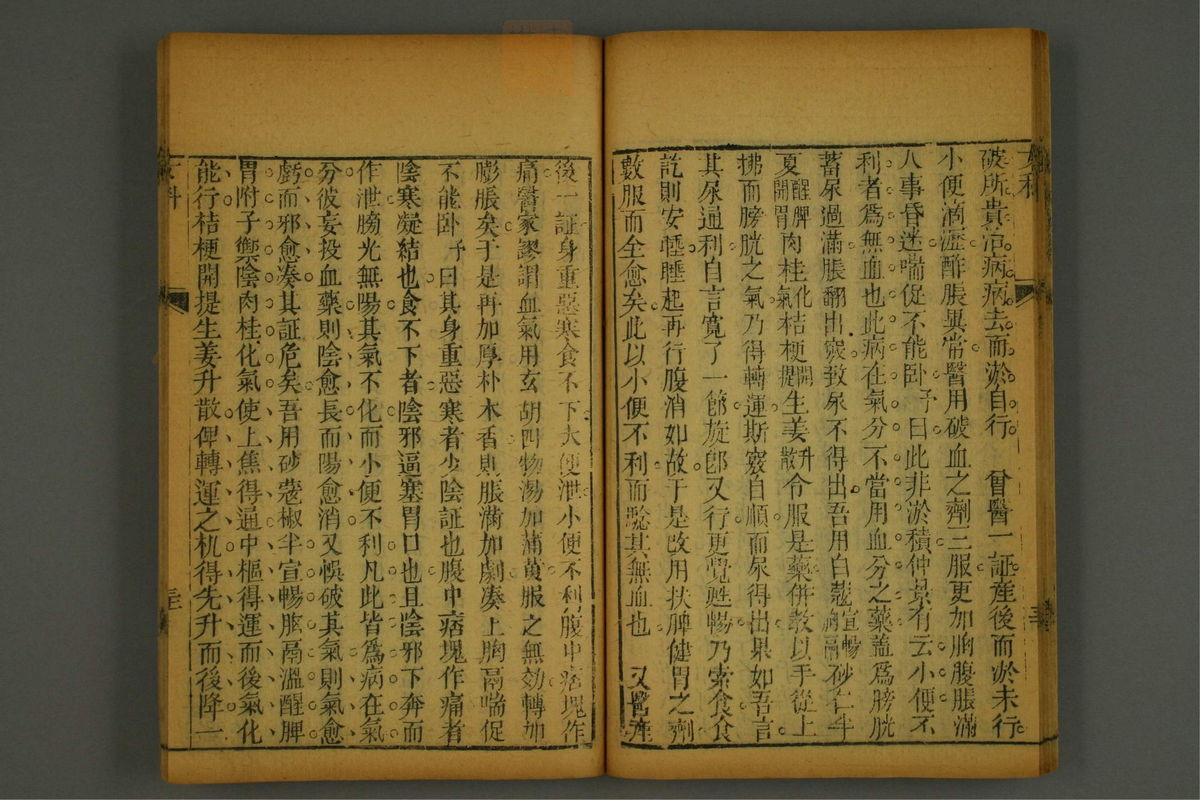 女科
破所貴治病病去而淤自行 曾醫一証產後而淤未行
小便滴瀝酢脹異常醫用破血之劑三服更加胸腹脹滿
人事昏迷喘促不能卧予曰此非淤積仲景有云小便不
利者為無血也此病在氣分不當用血分之藥蓋為膀胱
蓄尿過滿脹翻出竅致尿不得出吾用白蔻宣暢胸膈砂仁半
夏醒脾開胃肉桂化氣桔梗開提生姜升散令服是藥併教以手從上
拂而膀胱之氣乃得轉運斯竅自順而尿得出果如吾言
其尿通利自言寬了一節旋卽又行更覺甦暢乃索食食
訖則安睡睡起再行腹消如故于是改用扶脾健胃之劑
數服而全愈矣此以小便不利而驗其無血也 又醫產
後一証身重惡寒食不下大便泄小便不利腹中痞塊作
痛醫家謬謂血氣用玄胡四物湯加蒲黃服之無効轉加
膨脹矣于是再加厚朴木香則脹滿加劇凑上胸膈喘促
不能卧予曰其身重惡寒者少陰証也腹中痞塊作痛者
陰寒凝結也食不下者陰邪逼塞胃口也且陰邪下奔而
作泄膀光無陽其氣不化而小便不利凡此皆為病在氣
分彼妄投血藥則陰愈長而陽愈消又悞破其氣則氣愈
虧而邪愈凑其証危矣吾用砂蔻椒半宣暢胸膈溫醒脾
胃附子禦陰肉桂化氣使上焦得通中樞得運而後氣化
能行桔梗開提生姜升散俾轉運之机得先升而後降一
女科
三